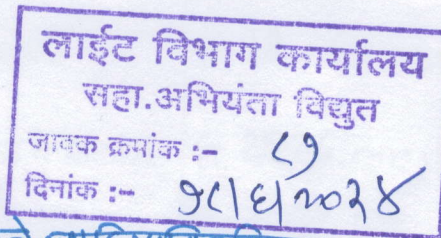 लाईट विभाग कार्यालय
सहा.अभियंता विद्युत
जावक क्रमांक :- ८१
दिनांक :- १८/६/२०२४